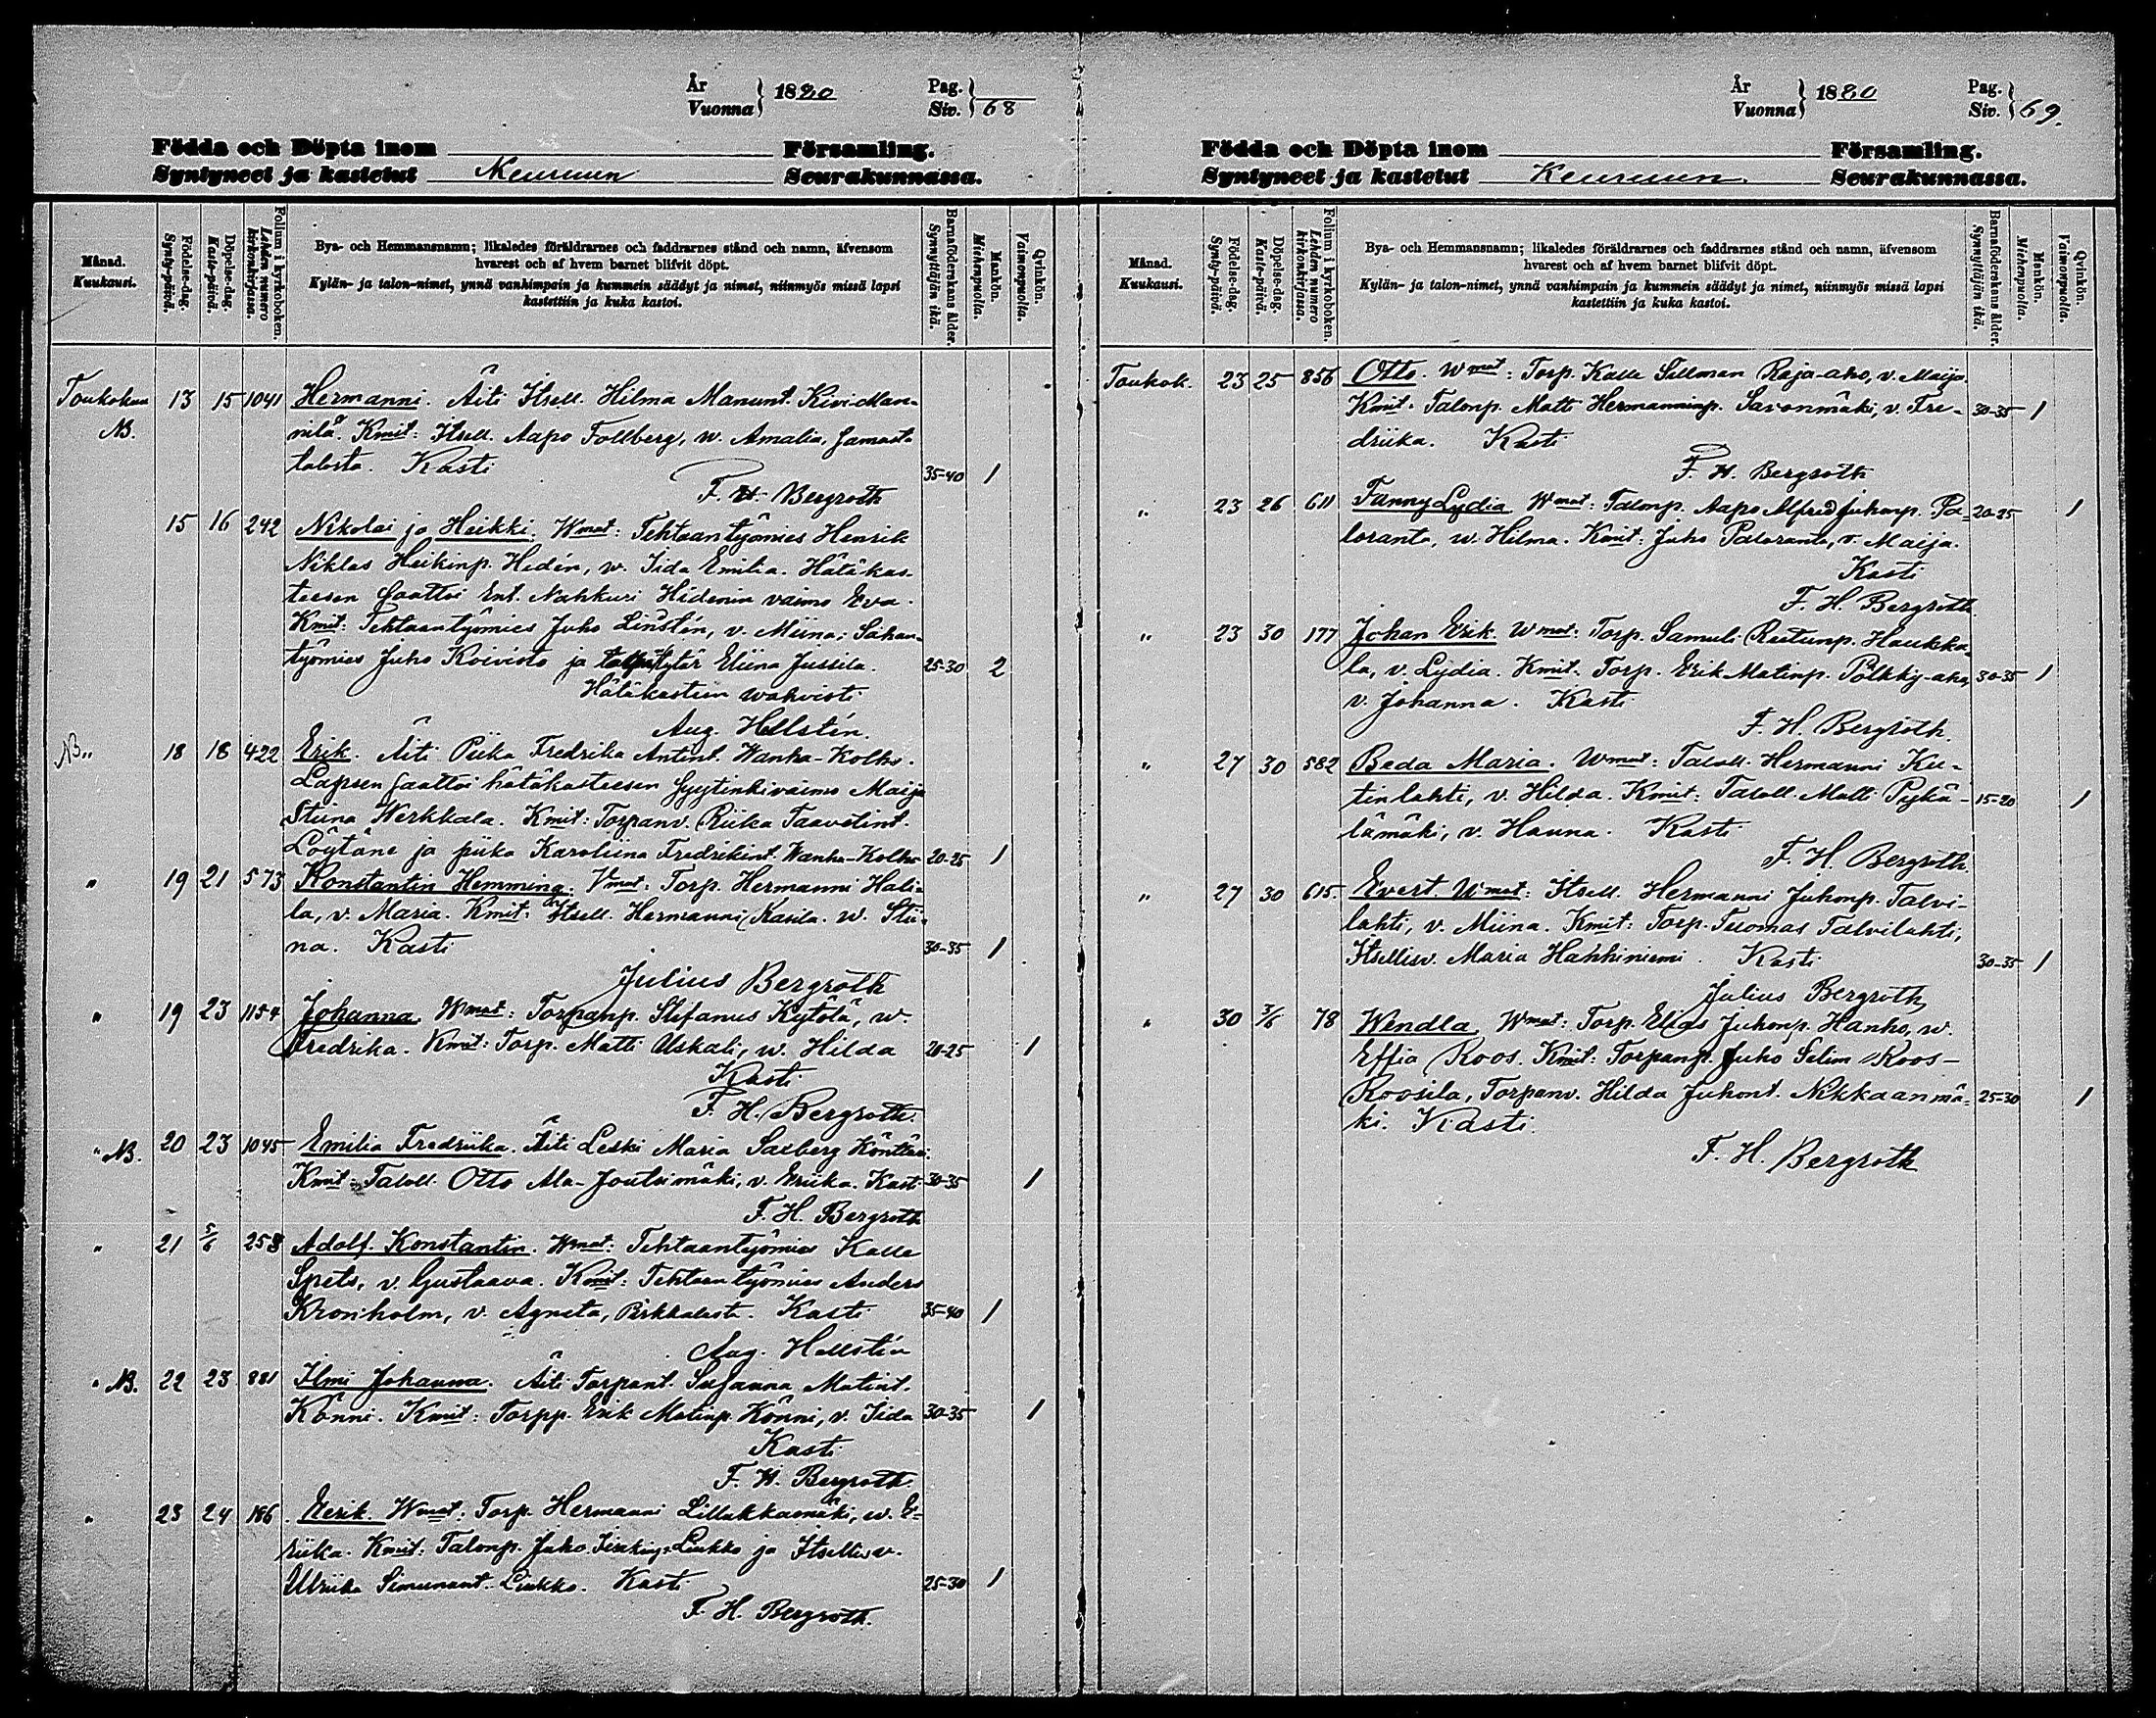 År
Vuonna } 1880
Pag.
Siv. } 68
Födda och Döpta inom Församling.
Syntyneet ja kastetut Keuruun Seurakunnassa.
Månad.
Kuukausi.
Födelse-dag.
Synty-päivä.
Döpelse-dag.
Kaste-päivä.
Folium i kyrkoboken.
Lehden numero kirkonkirjassa.
Bya- och Hemmansnamn; likaledes föräldrarnes och faddrarnes stånd och namn, äfvensom
hvarest och af hvem barnet blifvit döpt.
Kylän- ja talon-nimet, ynnä vanhimpain ja kummein säädyt ja nimet, niinmyös missä lapsi
kastettiin ja kuka kastoi.
Barnaföderskans ålder.
Synnyttäjän ikä.
Mankön.
Miehenpuolia.
Qvinkön.
Vaimonpuolia.
Toukokuu 13 15 1041 Hermanni. Äiti Itsell. Hilma Manunt. Kivi-Man-
NB. nilä. Kmit: Itsell. Aapo Follberg, w. Amalia, samasta
talosta. Kasti 35-40 1
F. H. Bergroth
15 16 242 Nikolai ja Heikki. Wmat: Tehtaantyömies Henrik
Niklas Heikinp. Hedén, w. Iida Emilia. Hätäkas-
teesen saattoi Ent. Nahkuri Hidenin vaimo Eva.
Kmit: Tehtaantyömies Juho Linstén, v. Miina; Sahan-
työmies Juho Koivisto ja tytär Eliina Jussila. 25-30 2
Hätäkasteen wahvisti
Aug. Hellstén.
NB " 18 18 422 Erik. Äiti Piika Fredrika Antint. Wanha-Kolho.
Lapsen saattoi hätäkasteesen Syytinkivaimo Maija
Stiina Werkkala. Kmit: Torpanv. Riika Taavetint.
Löytäne ja piika Karoliina Fredrikint. Wanha-Kolho 20-25 1
" 19 21 573 Konstantin Hemming. Vmat: Torp. Hermanni Hali-
la, v. Maria. Kmit: Itsell. Hermanni Kasila. w. Stii-
na. Kasti 30-35 1
Julius Bergroth
" 19 23 1154 Johanna. Wmat: Torpanp. Stefanus Kytölä, w.
Fredrika. Kmit: Torp. Matti Uskali, w. Hilda 20-25 1
Kasti
F. H. Bergroth.
" NB. 20 23 1045 Emilia Fredriika. Äiti Leski Maria Saxberg Könttäri.
Kmit: Taloll. Otto Ala-Joutsimäki, v. Eriika. Kasti 30-35 1
F. H. Bergroth
" 21 5/6 258 Adolf Konstantin. Wmat: Tehtaantyömies Kalle
Spets, v. Gustaava. Kmit: Tehtaantyömies Anders
Kronholm, v. Agneta, Pirkkalasta. Kasti 35-40 1
Aug. Hellstén
" NB. 22 23 881 Ilmi Johanna. Äiti Torpant. Susanna Matint.
Könni. Kmit: Torpp. Erik Matinp. Könni, v. Iida 30-35 1
Kasti
F. H. Bergroth.
" 23 24 186 Eerik. Wmat: Torp. Hermanni Lillukkamäki, w. E-
riika. Kmit: Talonp. Juho Liukko ja Itsellisv.
Ulriika Simunant. Liukko. Kasti 25-30 1
F. H. Bergroth.
År
Vuonna } 1880
Pag.
Siv. } 69.
Födda och Döpta inom Församling.
Syntyneet ja kastetut Keuruun. Seurakunnassa.
Månad.
Kuukausi.
Födelse-dag.
Synty-päivä.
Döpelse-dag.
Kaste-päivä.
Folium i kyrkoboken.
Lehden numero kirkonkirjassa.
Bya- och Hemmansnamn; likaledes föräldrarnes och faddrarnes stånd och namn, äfvensom
hvarest och af hvem barnet blifvit döpt.
Kylän- ja talon-nimet, ynnä vanhimpain ja kummein säädyt ja nimet, niinmyös missä lapsi
kastettiin ja kuka kastoi.
Barnaföderskans ålder.
Synnyttäjän ikä.
Mankön.
Miehenpuolia.
Qvinkön.
Vaimonpuolia.
Toukok. 23 25 856 Otto. Wmat: Torp. Kalle Sillman Raja-aho, v. Maija.
Kmit: Talonp. Matti Hermanninp. Savonmäki, v. Fre- 30-35 1
driika. Kasti
F. H. Bergroth
" 23 26 611 Fanny Lydia. Wmat: Talonp. Aapo Alfred Juhonp. Pa- 20-25 1
loranta, w. Hilma. Kmit: Juho Paloranta, v. Maija.
Kasti
F. H. Bergroth
" 23 30 177 Johan Erik. Wmat: Torp. Samuli Reetunp. Haukka-
la, v. Lydia. Kmit: Torp. Erik Matinp. Pölkky-aho, 30-35 1
v. Johanna. Kasti
F. H. Bergroth.
" 27 30 582 Beda Maria. Wmat: Taloll. Hermanni Ku-
tinlahti, v. Hilda. Kmit: Taloll. Matti Pykä- 15-20 1
lämäki, v. Hanna. Kasti
F. H. Bergroth.
" 27 30 615. Evert. Wmat: Itsell. Hermanni Juhonp. Talvi-
lahti, v. Miina. Kmit: Torp. Tuomas Talvilahti,
Itsellisv. Maria Hahhiniemi. Kasti 30-35 1
Julius Bergroth
" 30 3/6 78 Wendla. Wmat: Torp. Elias Juhonp. Hanho, w.
Effia Roos. Kmit: Torpanp. Juho Selim Roos-
Roosila, Torpanv. Hilda Juhont. Nikkaanmä- 25-30 1
ki. Kasti.
F. H. Bergroth